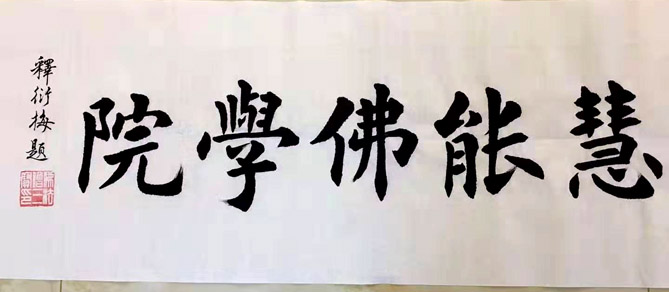 慧能佛學院
釋衍梅題